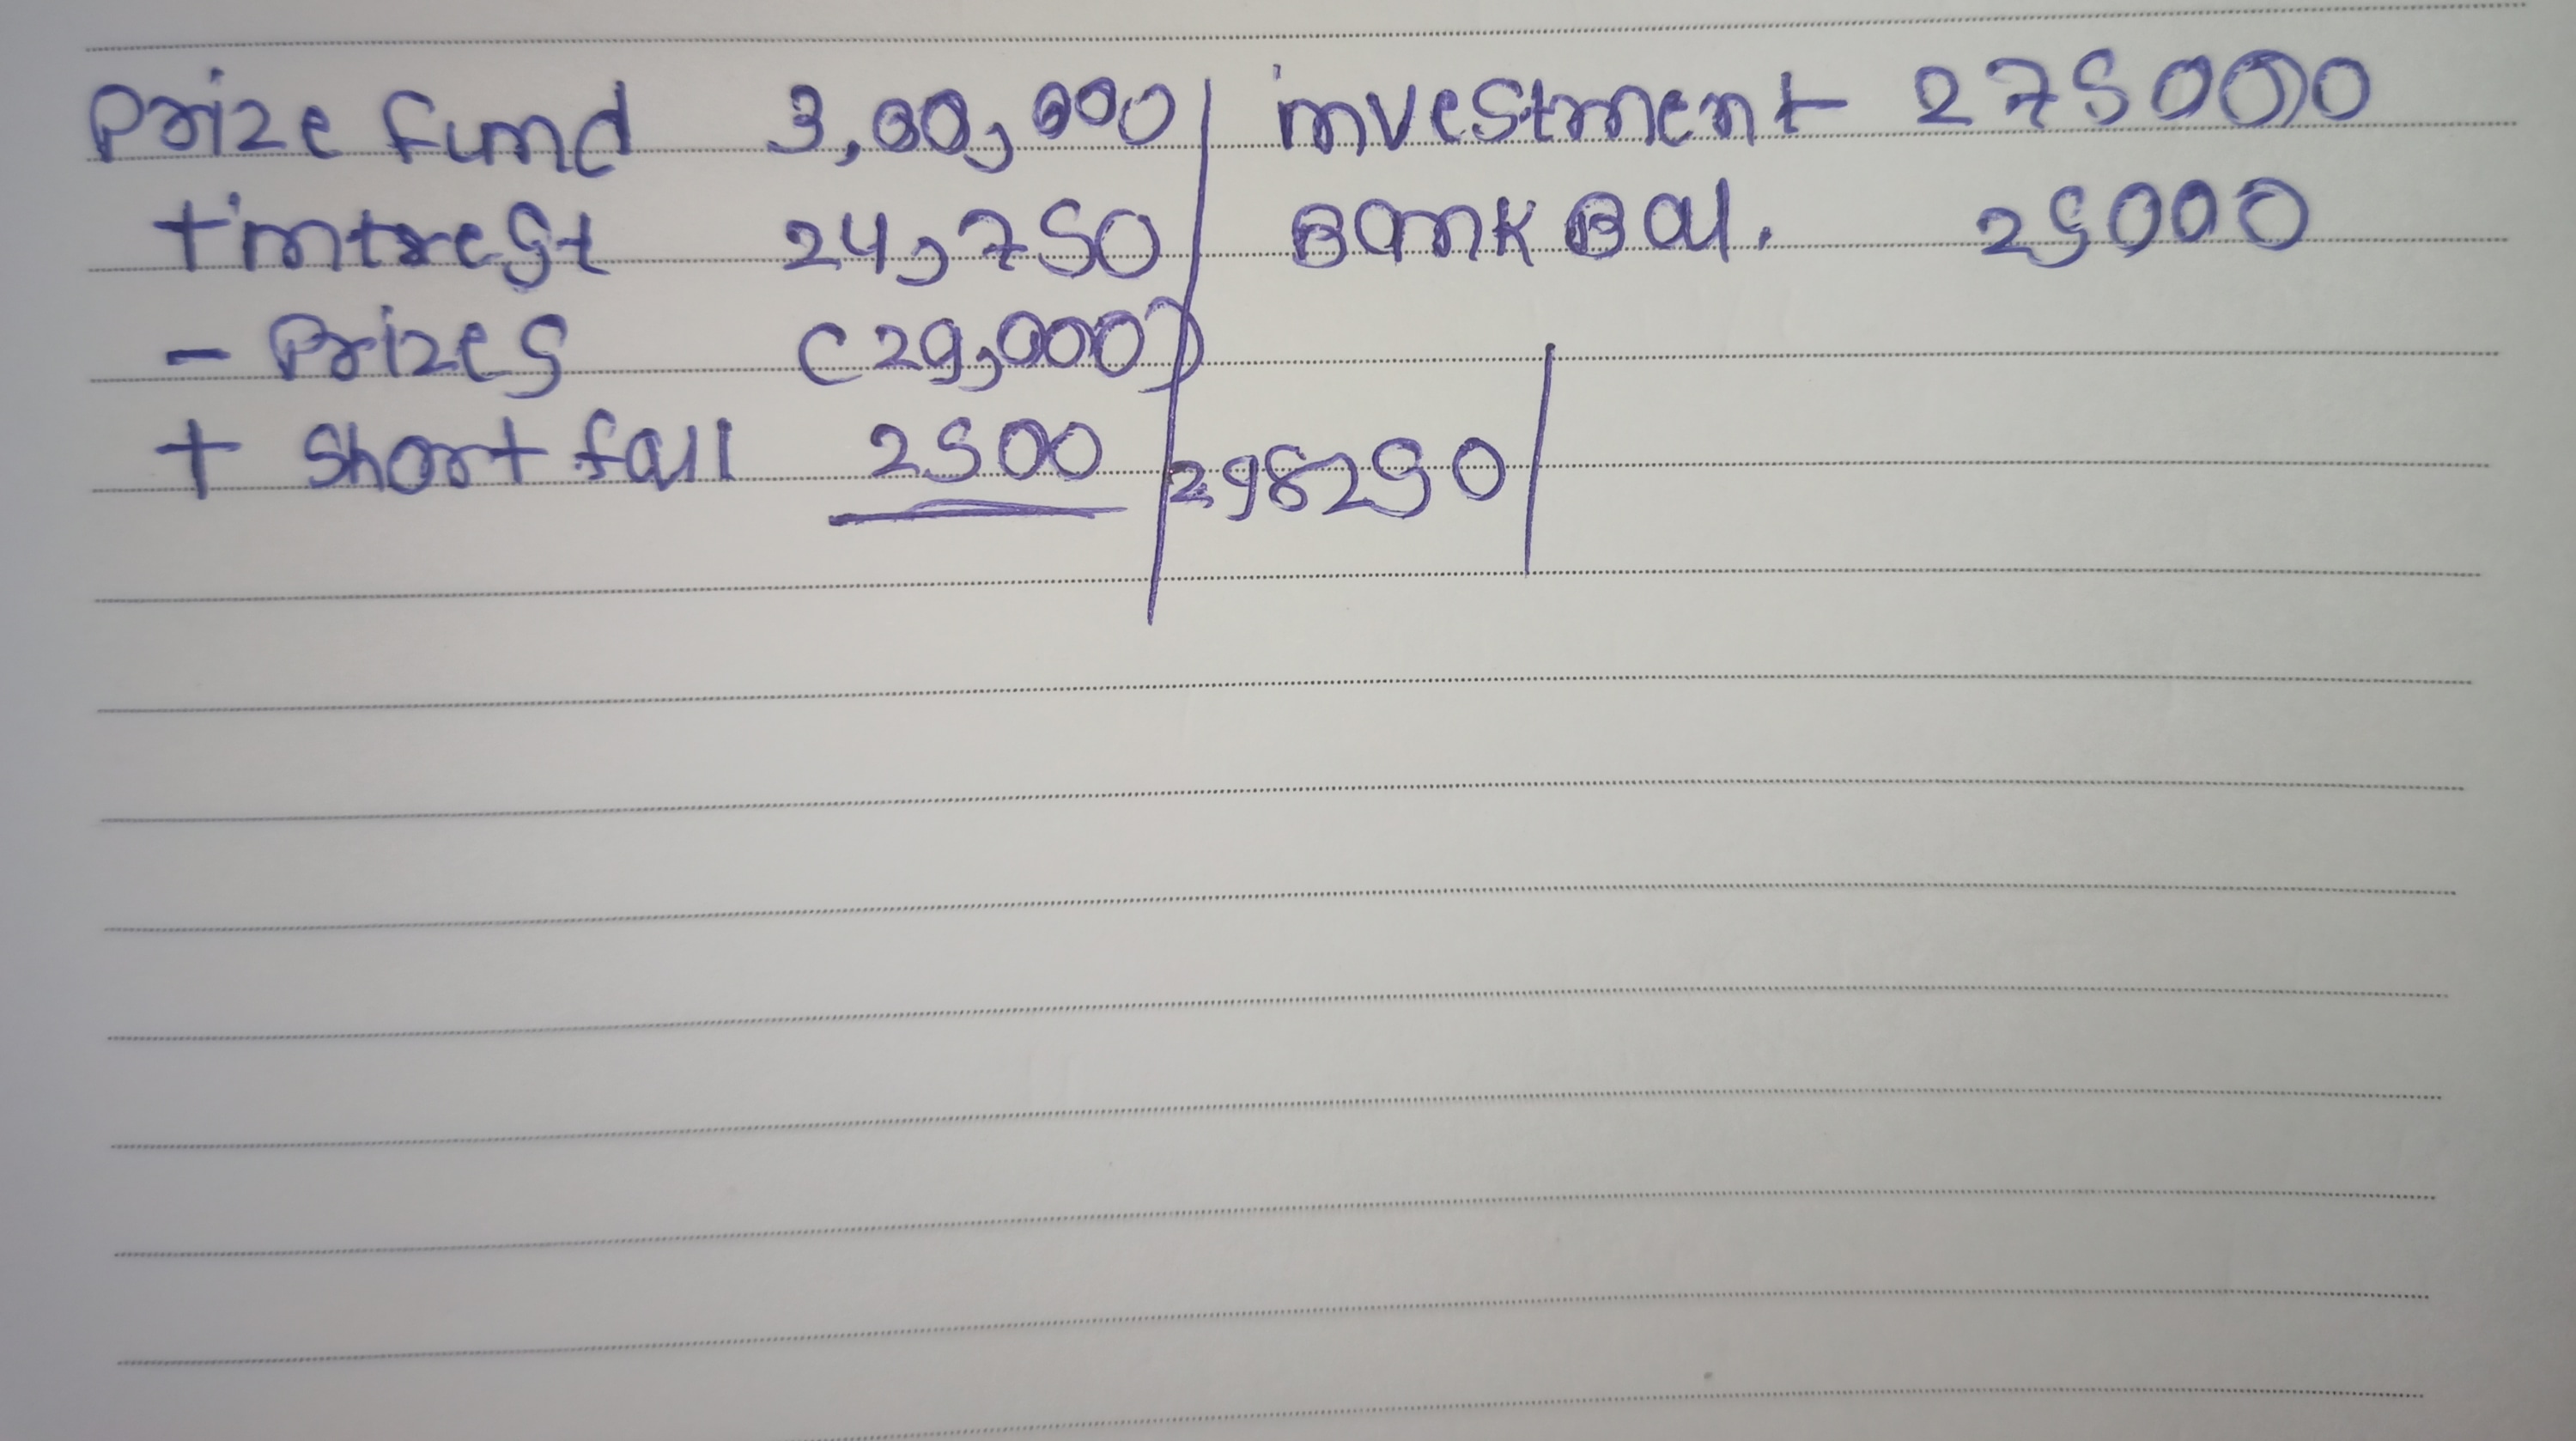 Prize fund 3,00,000 investment 275000
+intrest 24,750 Bank Bal. 25000
- Prizes (29,000)
+ Short fall 2500 298250